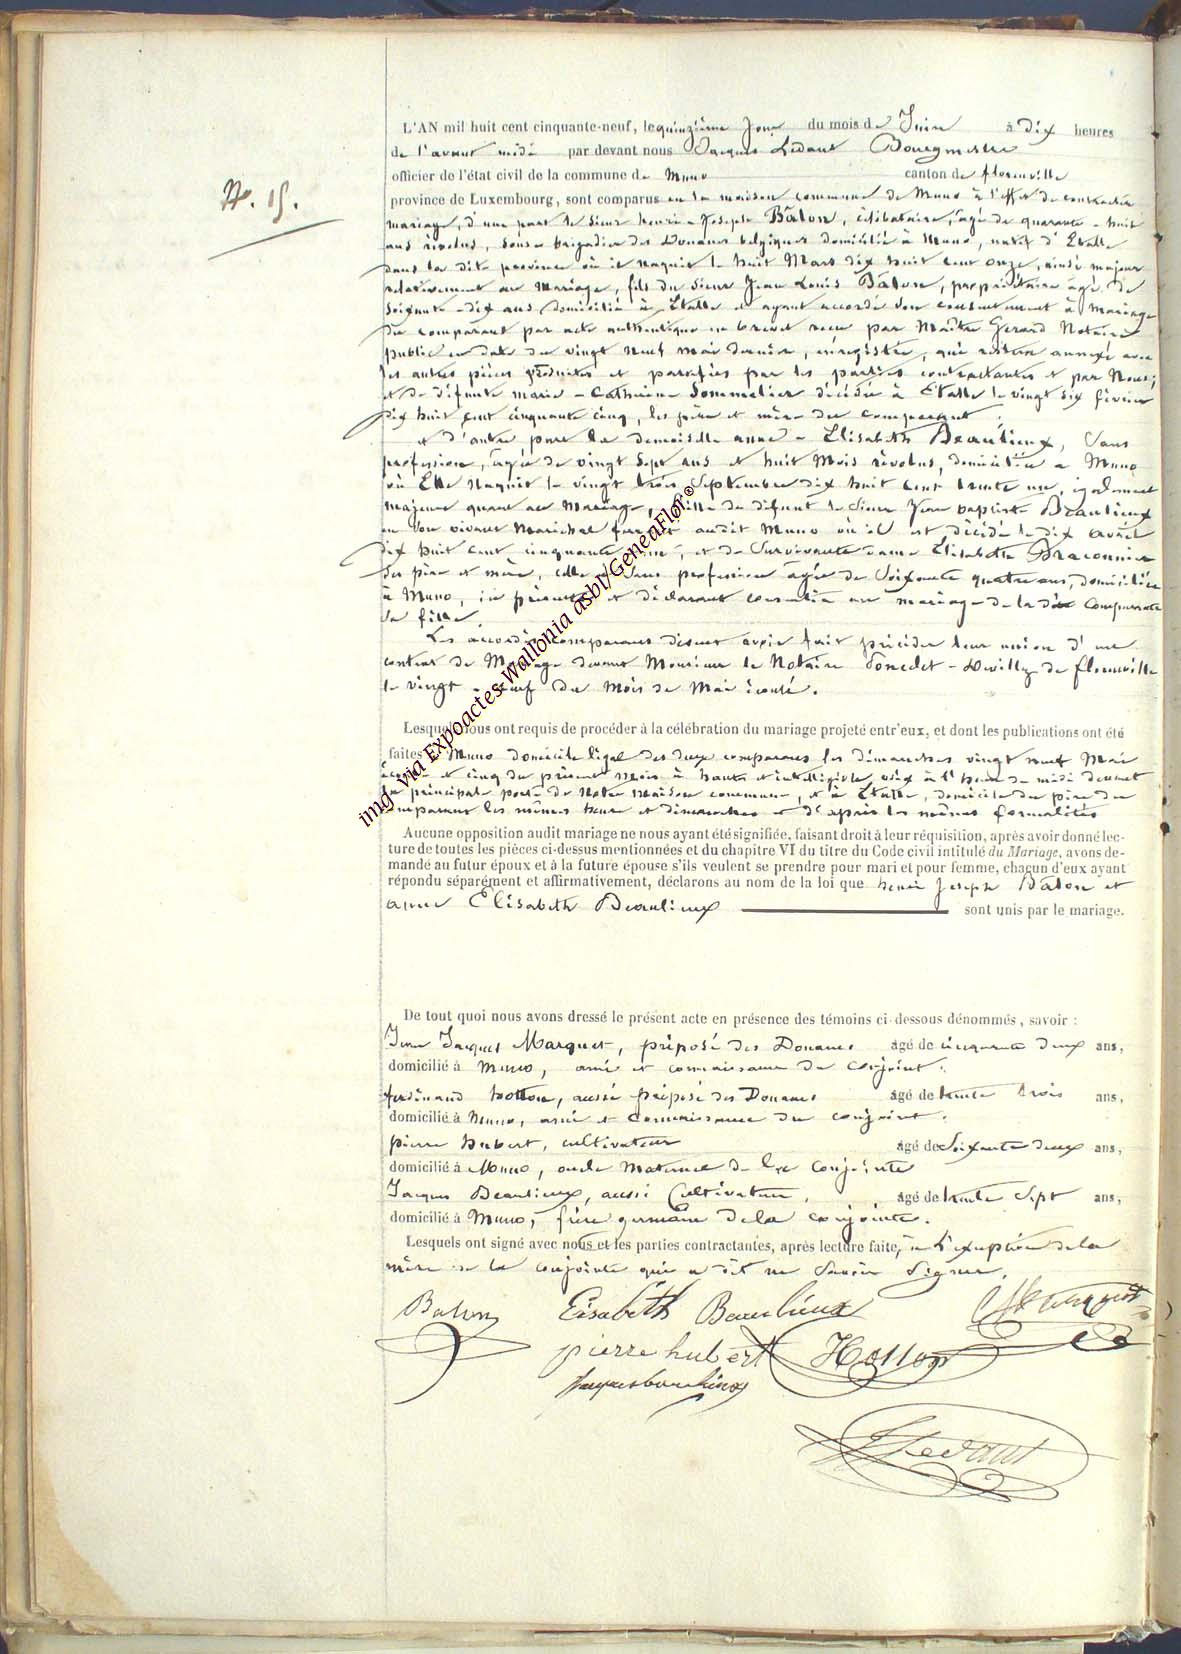 N°. 15.
L'AN mil huit cent cinquante-neuf, le quinzième jour du mois de Juin à dix heures
de l'avant midi par devant nous Jacques Ledant Bourgmestre
officier de l'état civil de la commune de Muno canton de florenville
province de Luxembourg, sont comparus en la maison commune de Muno à l'effet de contracter
mariage, d'une part le sieur henri-Joseph Bâlon, célibataire, âgé de quarante-huit
ans révolus, sous-brigadier des Douanes belgiques domicilié à Muno, natif d'Etalle
dans la dite province où il naquit le huit Mars dix huit cent onze, ainsi majeur
relativement au mariage, fils du Sieur Jean Louis Bâlon, propriétaire âgé de
soixante-dix ans domicilié à Etalle et ayant accordé son consentement à mariage
du comparant par acte authentique en brevet reçu par Maître Gerard Notaire
public en date du vingt neuf mai dernier, enregistré, qui restera annexé avec
les autres pièces produites et parafées par les parties contractantes et par Nous;
et de défunte marie-Catherine Sommelier décédée à Etalle le vingt six février
dix huit cent cinquante cinq, les père et mère du comparant;
et d'autre part la demoiselle anne-Elisabeth Beaulieux, Sans
profession, âgée de vingt sept ans et huit Mois révolus, domiciliée à Muno
où Elle naquit le vingt trois Septembre dix huit cent trente un, également
majeure quant au Mariage, fille du défunt le Sieur Jean baptiste Beaulieux
en son vivant Maréchal ferrant audit Muno où il est décédé le dix avril
dix huit cent cinquante, et de Survivante dame Elisabeth Braconnier
Ses père et mère, celle-ci sans profession âgée de Soixante quatre ans, domiciliée
à Muno, ici présente et déclarant consentir au mariage de la dite Comparante
Sa fille.
Les accordés comparans disent avoir fait précéder leur union d'un
contrat de Mariage devant Monsieur le Notaire de florenville
le vingt-neuf du Mois de Mai écoulé.
Lesquels nous ont requis de procéder à la célébration du mariage projeté entr'eux, et dont les publications ont été
faites à Muno domicile légal des deux comparans les dimanches vingt neuf Mai
écoulé et cinq du présent mois à haute et intelligible voix à l'heure de midi devant
la principale porte de Notre Maison commune, et à Etalle, domicile du père du
comparant les mêmes heure et dimanches et d'après les mêmes formalités
Aucune opposition audit mariage ne nous ayant été signifiée, faisant droit à leur réquisition, après avoir donné lec-
ture de toutes les pièces ci-dessus mentionnées et du chapitre VI du titre du Code civil intitulé du Mariage, avons de-
mandé au futur époux et à la future épouse s'ils veulent se prendre pour mari et pour femme, chacun d'eux ayant
répondu séparément et affirmativement, déclarons au nom de la loi que henri Joseph Bâlon et
anne Elisabeth Beaulieux sont unis par le mariage.
De tout quoi nous avons dressé le présent acte en présence des témoins ci-dessous dénommés, savoir :
Jean Jacques Marquet, préposé des Douanes âgé de cinquante deux ans,
domicilié à Muno, ami et connaissance du conjoint.
ferdinand hotton, aussi préposé des Douanes âgé de trente trois ans,
domicilié à Muno, ami et connaissance du conjoint.
pierre hubert, cultivateur âgé de Soixante deux ans,
domicilié à Muno, oncle maternel de la conjointe
Jacques Beaulieux, aussi Cultivateur, âgé de trente Sept ans,
domicilié à Muno, frère germain de la conjointe.
Lesquels ont signé avec nous et les parties contractantes, après lecture faite, à l'exception de la
mère de la conjointe qui a dit ne Savoir Signer.
Balon Elisabeth Beaulieux Marquet
pierre hubert Hotton
Jacques beaulieux
J Ledant
img via Expoactes-Wallonia asbl/GeneaFlor©